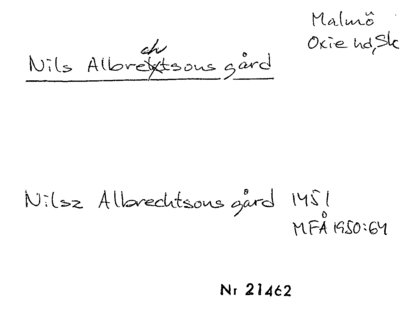 Malmö
Oxie hd, Sk
Nils Albrechtsons gård
Nilsz Albrechtsons gård 1451
MFÅ 1950:64
Nr 21462